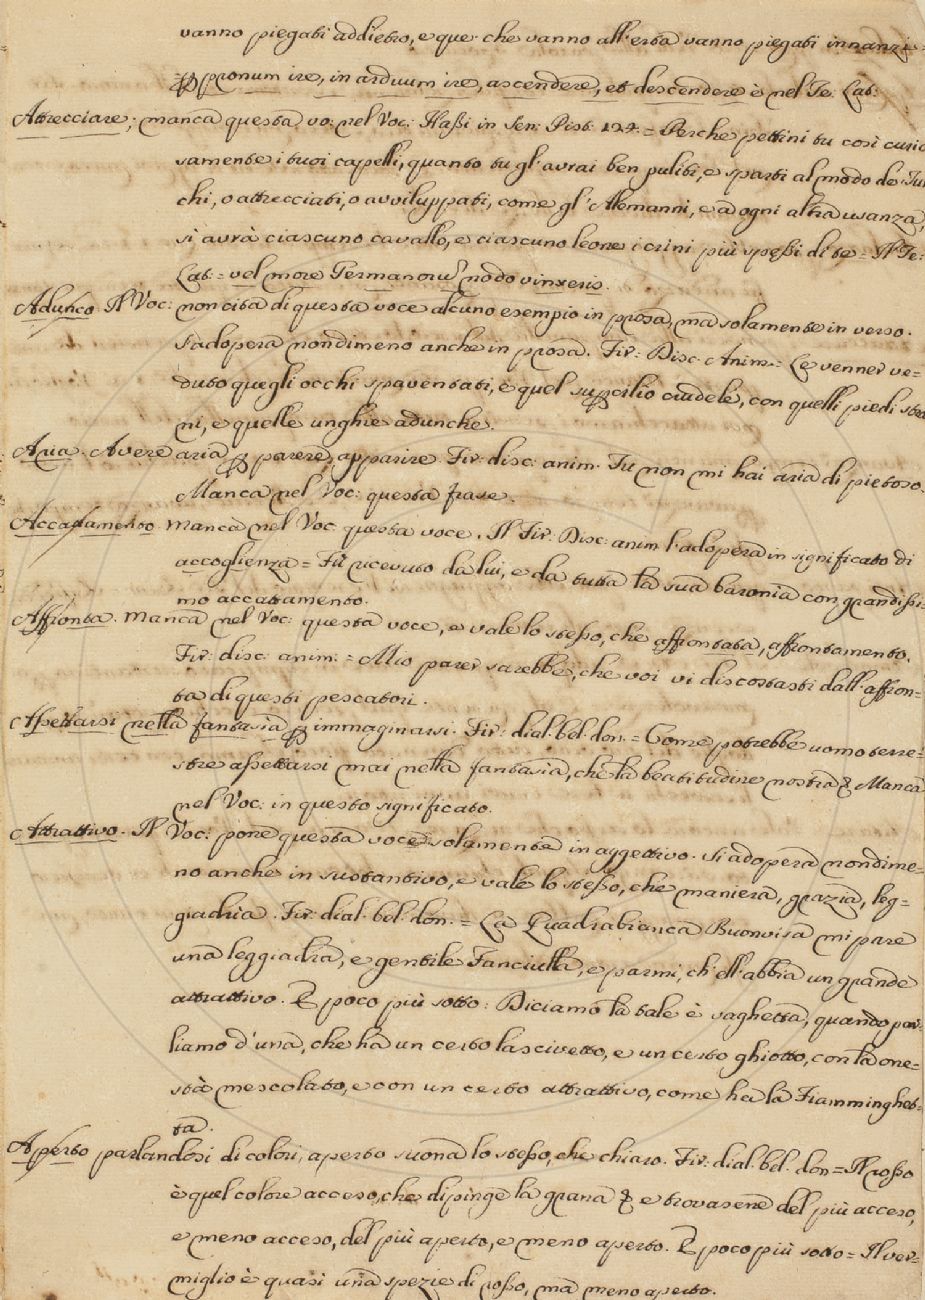 vanno piegati addietro, e que che vanno all'erta vanno piegati innanzi =
ꝑ pronum ire, in arduum ire, ascendere, et descendere è nel Te: Lat:
Attrecciare; manca questa vo: nel Voc: Haßi in Sen: Pist: 124. = Perche pettini tu così curio
samente i tuoi capelli, quanto tu gl'avrai ben puliti, e sparti al modo de Tur
chi, o attrecciati, o avviluppati, come gl'Alemanni, e ad ogni altra usanza,
si avrà ciascuno cavallo, e ciascuno leone i crini più speßi di te = Il Te:
Lat: = vel more Germanorũ nodo vinxeris.
Adunco. Il Voc: non cita di questa voce alcuno esempio in prosa, ma solamente in verso.
S'adopera nondimeno anche in prosa. Fir: Disc: Anim: = Le venner ve=
duto quegli occhi spaventati, e quel suꝑcilio crudele, con quelli piedi stra
ni, e quelle unghie adunche.
Aria. Avere aria ꝑ parere, apparire. Fir: disc: anim. Tu non mi hai aria di pietoso.
Manca nel Voc: questa frase.
Accattamento. Manca nel Voc. questa voce. Il Fir: Disc: anim l'adopera in significato di
accoglienza = Fù ricevuto da lui, e da tutta la sua baronia con grandißi=
mo accattamento.
Affronta. Manca nel Voc: questa voce, e vale lo steßo, che affrontata, affrontamento.
Fir: disc: anim: = Mio parer sarebbe, che voi vi discostasti dall'affron=
ta di questi pescatori.
Aßettarsi nella fantasia ꝑ immaginarsi. Fir: dial. bel. don. = Come potrebbe uomo terre=
stre aßettarsi mai nella fantasia, che la beatitudine nostra & Manca
nel Voc: in questo significato.
Attrattivo. Il Voc: pone questa voce solamente in aggettivo. Si adopera nondime=
no anche in sustantivo, e vale lo steßo, che maniera, grazia, leg=
giadria. Fir: dial. bel. don. = La Quadrabianca Buonvisa mi pare
una leggiadra, e gentile Fanciulla, e parmi, ch'ell'abbia un grande
attrattivo. E poco più sotto: Diciamo la tale è vaghetta, quando par=
liamo d'una, che ha un certo lascivetto, e un certo ghiotto, con la one=
stà mescolato, e con un certo attrattivo, come ha la Fiamminghet=
ta.
Aperto parlandosi di colori, aperto suona lo steßo, che chiaro. Fir: dial. bel. don = Il roßo
è quel colore acceso, che dipinge la grana & e trovasene del più acceso,
e meno acceso, del più aperto, e meno aperto. E poco più sotto = Il ver=
miglio è quasi una spezie di roßo, ma meno aperto.